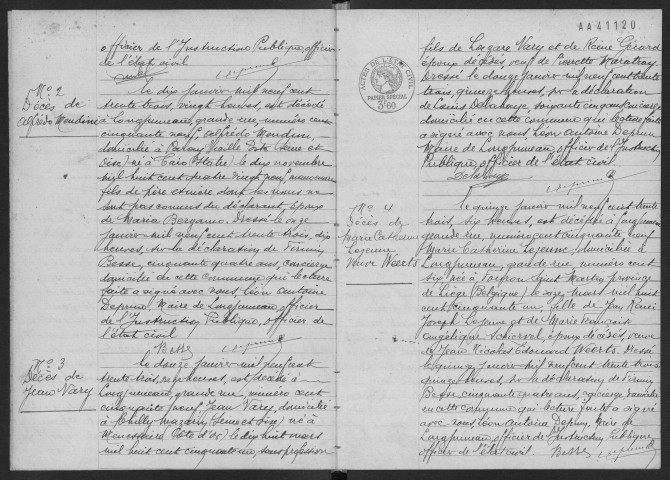 officier de l'Instruction Publique, officier
de l'état civil
No 2
Décès de
Alfrédo Mondini
Le dix janvier mil neuf cent
trente trois, vingt heures, est décédé
à Longjumeau, grande rue, numéro cent
cinquante neuf, Alfrédo Mondini,
domicilié à Seine et
Oise) né à (Italie) le dix novembre
mil huit cent quatre vingt neuf, manœuvre
fils de père et mère dont les noms ne
sont pas connus du déclarant, époux
de Maria Bergamo. Dressé le onze
janvier mil neuf cent trente trois, dix
heures, sur la déclaration de Firmin
Besse, cinquante quatre ans, concierge
domicilié de cette commune qui lecture
faite a signé avec nous, Léon Antoine
Deprun, Maire de Longjumeau, officier
de l'Instruction Publique, officier de
l'état civil
Besse
No 3
Décès de
Jean Vary
Le douze janvier mil neuf cent
trente trois, heures, est décédé à
Longjumeau, grande rue, numéro cent
cinquante neuf, Jean Vary, domicilié
à Chilly-Mazarin (Seine et Oise) né à
(Côte d'Or) le dix huit mars
mil huit cent cinquante un, sans profession
AA41120
ACTES DE L'ÉTAT CIVIL
PAPIER SPÉCIAL
3F60
fils de Lazare Vary et de Reine Girard
époux décédés, veuf de Pierrette
Dressé le douze janvier mil neuf cent trente
trois, quinze heures, sur la déclaration
de Louis Delahaye, soixante cinq ans,
domicilié en cette commune qui lecture faite
a signé avec nous Léon Antoine Deprun
Maire de Longjumeau, officier de l'Instruction
Publique, officier de l'état civil.
No 4
Décès de
Marie Catherine
Lejeune
Veuve Weerts
Le quinze janvier mil neuf cent trente
trois, dix heures, est décédée à Longjumeau
grande rue, numéro cent cinquante neuf
Marie Catherine Lejeune, domiciliée à
Longjumeau, grande rue, numéro cent
née à Saint Martin province
de Liège (Belgique) le mars mil huit
cent cinquante un, fille de Jean
Joseph Lejeune et de Marie Françoise
Angélique époux décédés, veuve
de Jean Nicolas Edouard Weerts. Dressé
le quinze janvier mil neuf cent trente trois
quinze heures, sur la déclaration de Firmin
Besse, cinquante quatre ans, concierge, domicilié
en cette commune qui lecture faite a signé
avec nous, Léon Antoine Deprun, Maire de
Longjumeau, officier de l'Instruction Publique
officier de l'état civil. Besse